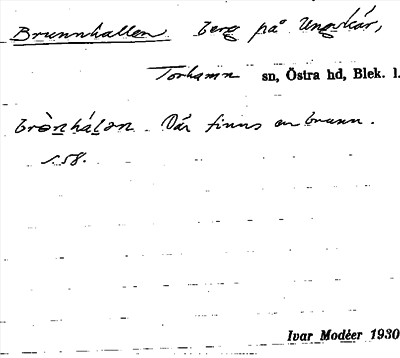 Brunnhallen. Berg på Ungskär,
Torhamn sn, Östra hd, Blek. l.
brònhálən. Där finns en brunn.
s. 58.
Ivar Modéer 1930